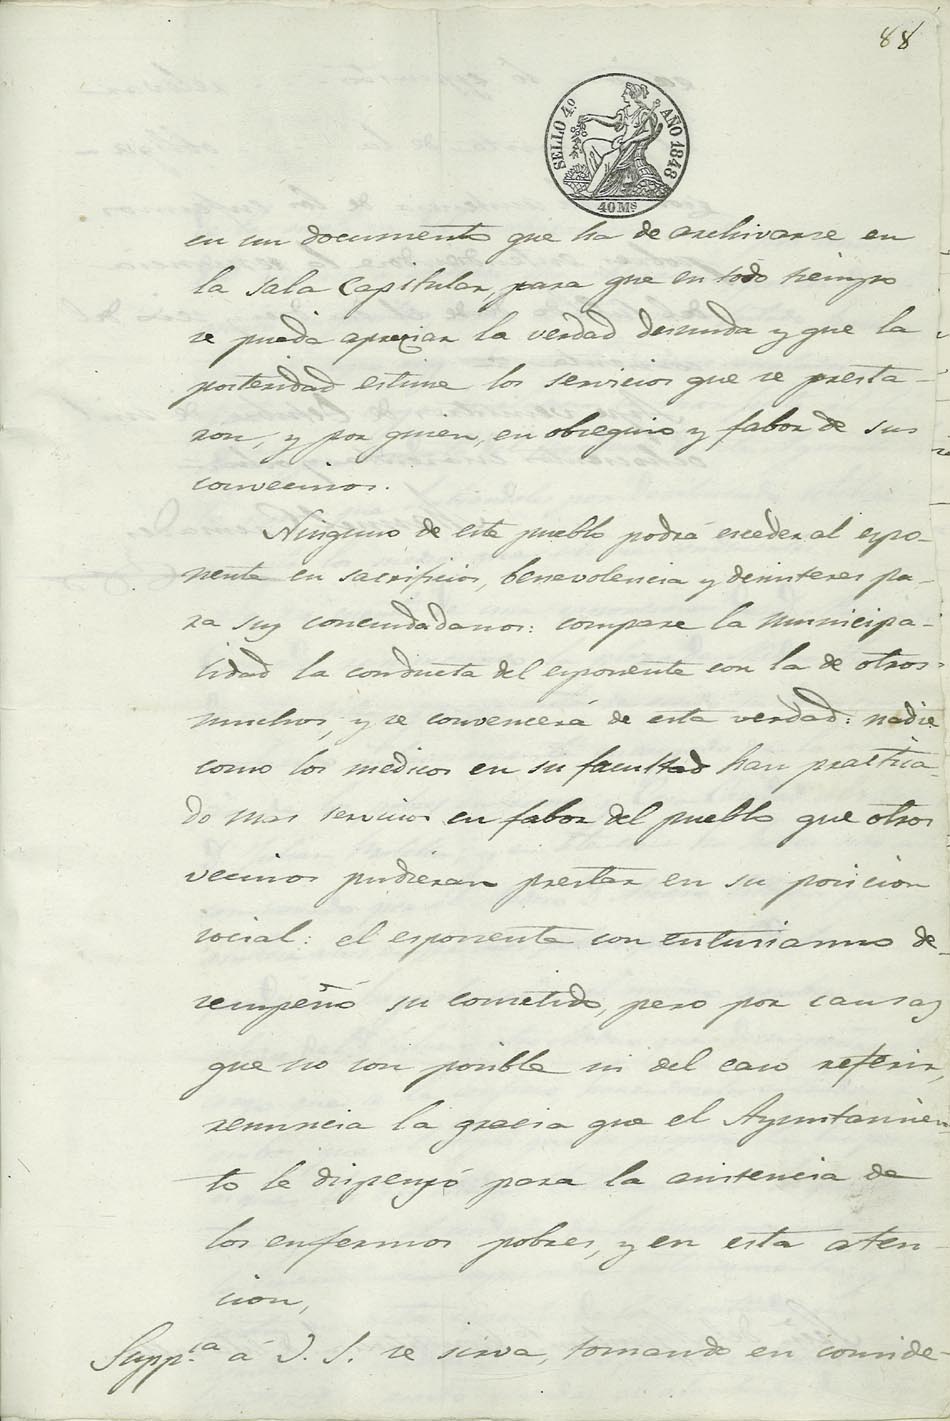 88
SELLO 4.º AÑO 1848
40 Ms
en un documento que ha de archivarse en
la sala Capitular, para que en todo tiempo
se pueda apreciar la verdad desnuda y que la
posteridad estime los servicios que se presta-
ron, y por quien, en obsequio y fabor de sus
convecinos.
Ninguno de este pueblo podrá esceder al espo-
nente en sacrificios, benevolencia y desinteres pa-
ra sus conciudadanos: compare la Municipa-
lidad la conducta del esponente con la de otros
muchos, y se convencerá de esta verdad: nadie
como los medicos en su facultad han practica-
do mas servicios en fabor del pueblo que otros
vecinos pudieran prestar en su posicion
social: el esponente con entusiasmo de-
sempeñó su cometido, pero por causas
que no son posible ni del caso referir,
renuncia la gracia que el Ayuntamien
to le dispensó para la asistencia de
los enfermos pobres, y en esta aten-
cion,
Supp.ca á V. S. se sirva, tomando en conside-